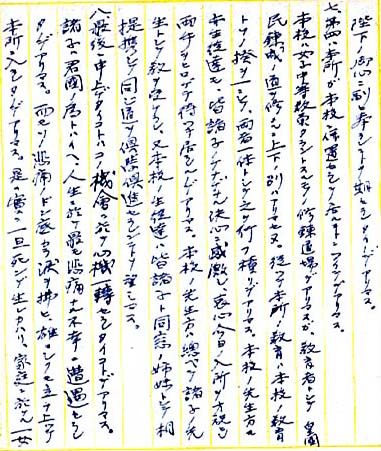 陛下ノ御心ニ副ヒ奉ランコトヲ期セラレタイノデアリマス。
七、第四、本所ガ本校ニ併置セラレテ居ルトイフコトデアリマス。
本校ハ女子中等教育ニタヅサハラントスルモノノ修錬道場デアリマスガ、教育者トシテ皇国
民錬成ノ道ヲ修ムルニ上下ノ別ハアリマセヌ。従ツテ本所ノ教育ハ本校ノ教育
トソノ揆ヲ一ニシ、両者一体トシテ之ヲ行フ積リデアリマス。本校ノ先生方モ
本生徒達モ、皆諸子ノケナゲナル決心ニ感激シ、衷心今日ノ入所ヲ祝シ
両手ヲヒロゲテ待ツテ居ルノデアリマス。本校ノ先生方ハ総ベテ諸子ノ先
生トシテ教ヘ導カレ、又本校ノ生徒達ハ皆諸子ト同窓ノ姉妹トシテ相
提携シテ同ジ道ヲ倶学倶進セラレンコトヲ望ミマス。
八、最後ニ申上ゲタイコトハコノ機会ニ於テ心機一転セラレタイコトデアリマス。
諸子ハ君国ノ為トハイヘ、人生ニ於テ最モ悲痛ナル不幸ニ遭遇セラレ
タノデアリマス。而モソノ悲痛ノドン底カラ涙ヲ拂ヒ、雄々シクモ立チ上ツテ
本所ニ入ラレタノデアリマス。是レ実ニ一旦死シテ生レカハリ、家庭ニ於ケル一女